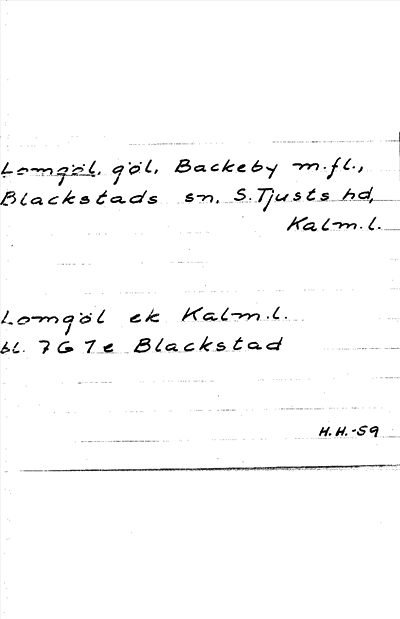 Lomgöl, göl, Backeby m.fl.,
Blackstads sn, S. Tjusts hd,
Kalm.l.
Lomgöl ek Kalm.l.
bl. 7G 7e Blackstad
H.H.-59